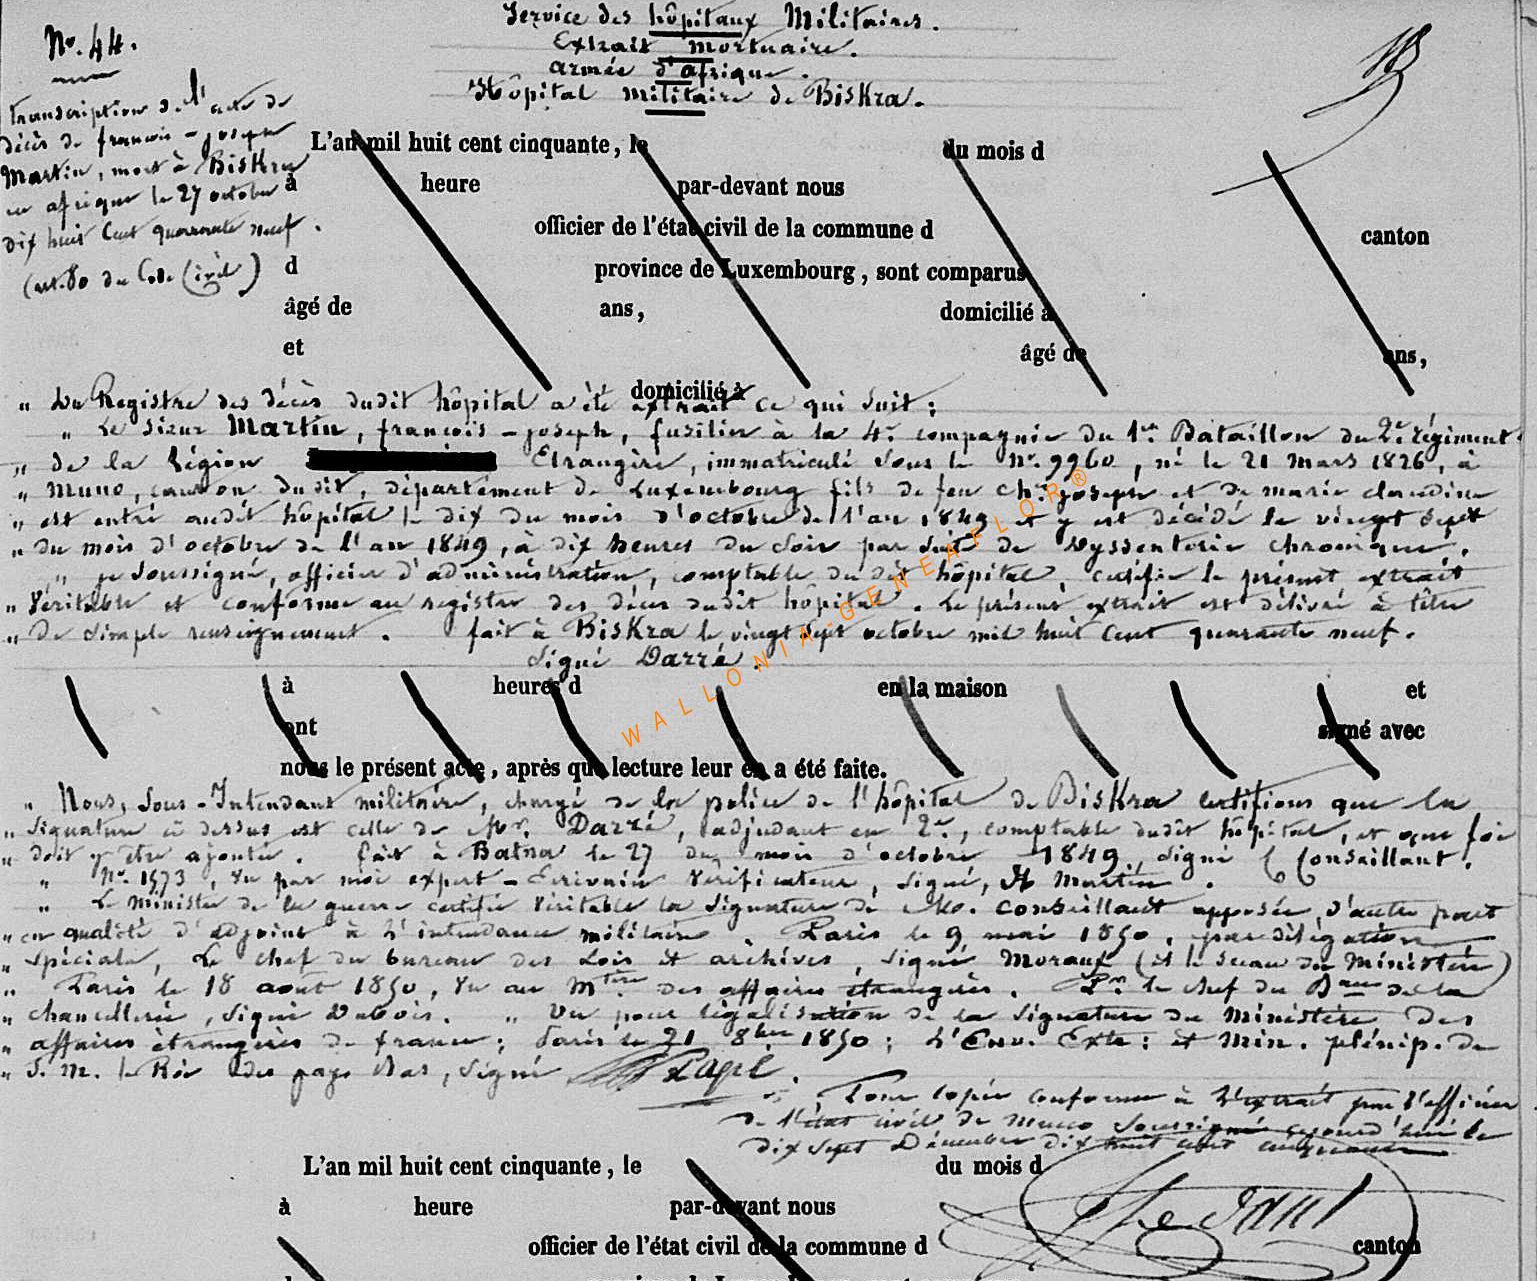 Service des hôpitaux Militaires.
Extrait mortuaire.
armée d'afrique.
Hôpital militaire de Biskra.
No. 44.
transcription de l'acte de
décès de francois-joseph
Martin, mort à Biskra
en afrique le 27 octobre
dix huit Cent quarante neuf.
(art. 80 du Code Civil)
L'an mil huit cent cinquante, le du mois d
à heure par-devant nous
officier de l'état civil de la commune d canton
d province de Luxembourg, sont comparus
âgé de ans, domicilié à
et âgé de ans,
domicilié à
„ Du Registre des décès dudit hôpital a été extrait ce qui suit :
„ Le sieur Martin, francois-joseph, fusilier à la 4e compagnie du 1er Bataillon du 2e régiment
„ de la Légion Etrangère, immatriculé sous le No. 9960, né le 21 mars 1826, à
„ Muno, canton dudit, département de Luxembourg fils de feu joseph et de marie claudine
„ est entré audit hôpital le dix du mois d'octobre de l'an 1849 et y est décédé le vingt sept
„ du mois d'octobre de l'an 1849, à dix heures du soir par suite de dyssenterie chronique.
„ je soussigné, officier d'administration, comptable du dit hôpital, certifie le présent extrait
„ véritable et conforme au registre des décès dudit hôpital. Le présent extrait est délivré à titre
„ de simple renseignement. fait à Biskra le vingt sept octobre mil huit cent quarante neuf.
signé Darré.
WALLONIA-GENEAFLOR®
à heures d en la maison et
ont signé avec
nous le présent acte, après que lecture leur en a été faite.
„ Nous, Sous-Intendant militaire, chargé de la police de l'hôpital de Biskra certifions que la
„ signature ci dessus est celle de Mr. Darré, adjudant en 2e, comptable dudit hôpital, et que foi
„ doit y être ajoutée. fait à Batna le 27 du mois d'octobre 1849, signé Conseillant.
„ No. 1573, Vu par moi expert-Ecrivain Vérificateur, signé, Martin.
„ Le Ministre de la guerre certifie Véritable la signature de Mo. Conseillant apposée, d'autre part
„ en qualité d'adjoint à l'intendance militaire Paris le 9 mai 1850, par délégation
„ spéciale, Le chef du bureau des Lois et archives, signé Moraux (et le sceau du Ministère)
„ Paris le 18 aout 1850, Vu au Mtère des affaires étrangères. Pr. le chef du Beau de la
„ chancellerie, signé Dubois. „ Vu pour légalisation de la signature du Ministère des
„ affaires étrangères de france; Paris le 21 8bre 1850; L'Env. Extr: et Min. plénip. de
„ S. M. le Roi des pays Bas, signé
Pour copie conforme à l'extrait par l'officier
de l'état civil de Muno soussigné aujourd'hui le
dix sept Décembre dix huit cent cinquante
L'an mil huit cent cinquante, le du mois d
à heure par-devant nous
officier de l'état civil de la commune d canton